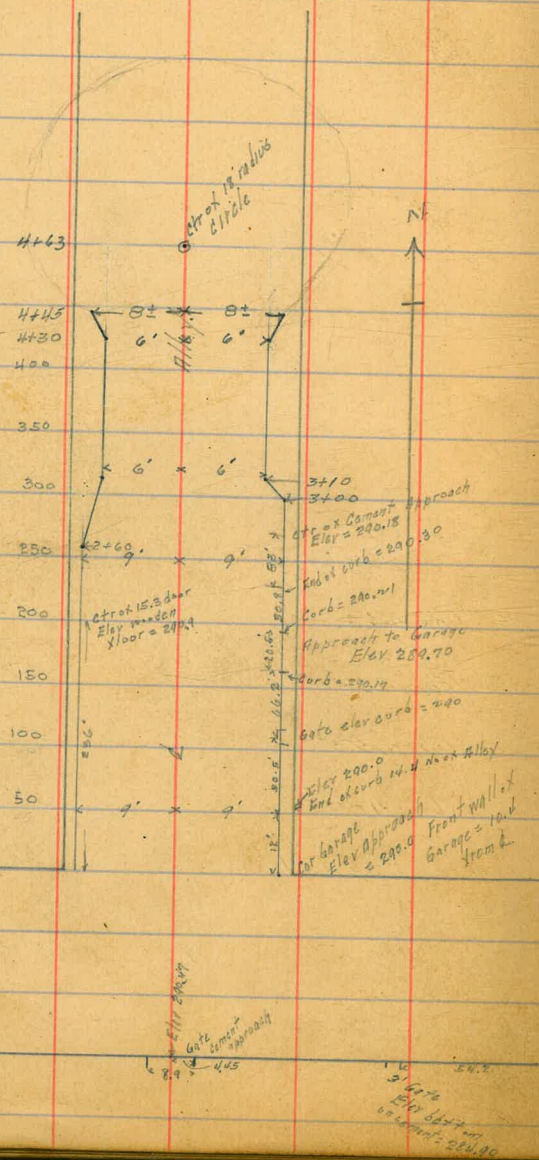 Ctr of 18' radius
Circle
N
4+63
4+45
8± 8±
4+30
6' 6'
Alley
400
350
6' 6'
300
3+10
3+00
Ctr of Cement Approach
Elev = 290.18
2+60
250
9' 9'
End of curb = 290.30
200
Ctr of 15.3 door
Elev wooden
floor = 290.9
Curb =
Approach to Garage
Elev 289.70
150
Curb = 290.17
100
Gate elev curb = 290
236'
Elev 290.0
End of curb 14.4 No of Alley
50
9' 9'
12'
Cor Garage
Elev Approach
= 290.0
Front wall of
Garage =
from ℄
Elev 290.49
Gate
cement
approach
8.9
4.45
3' Gate
Elev bottom
on cement =